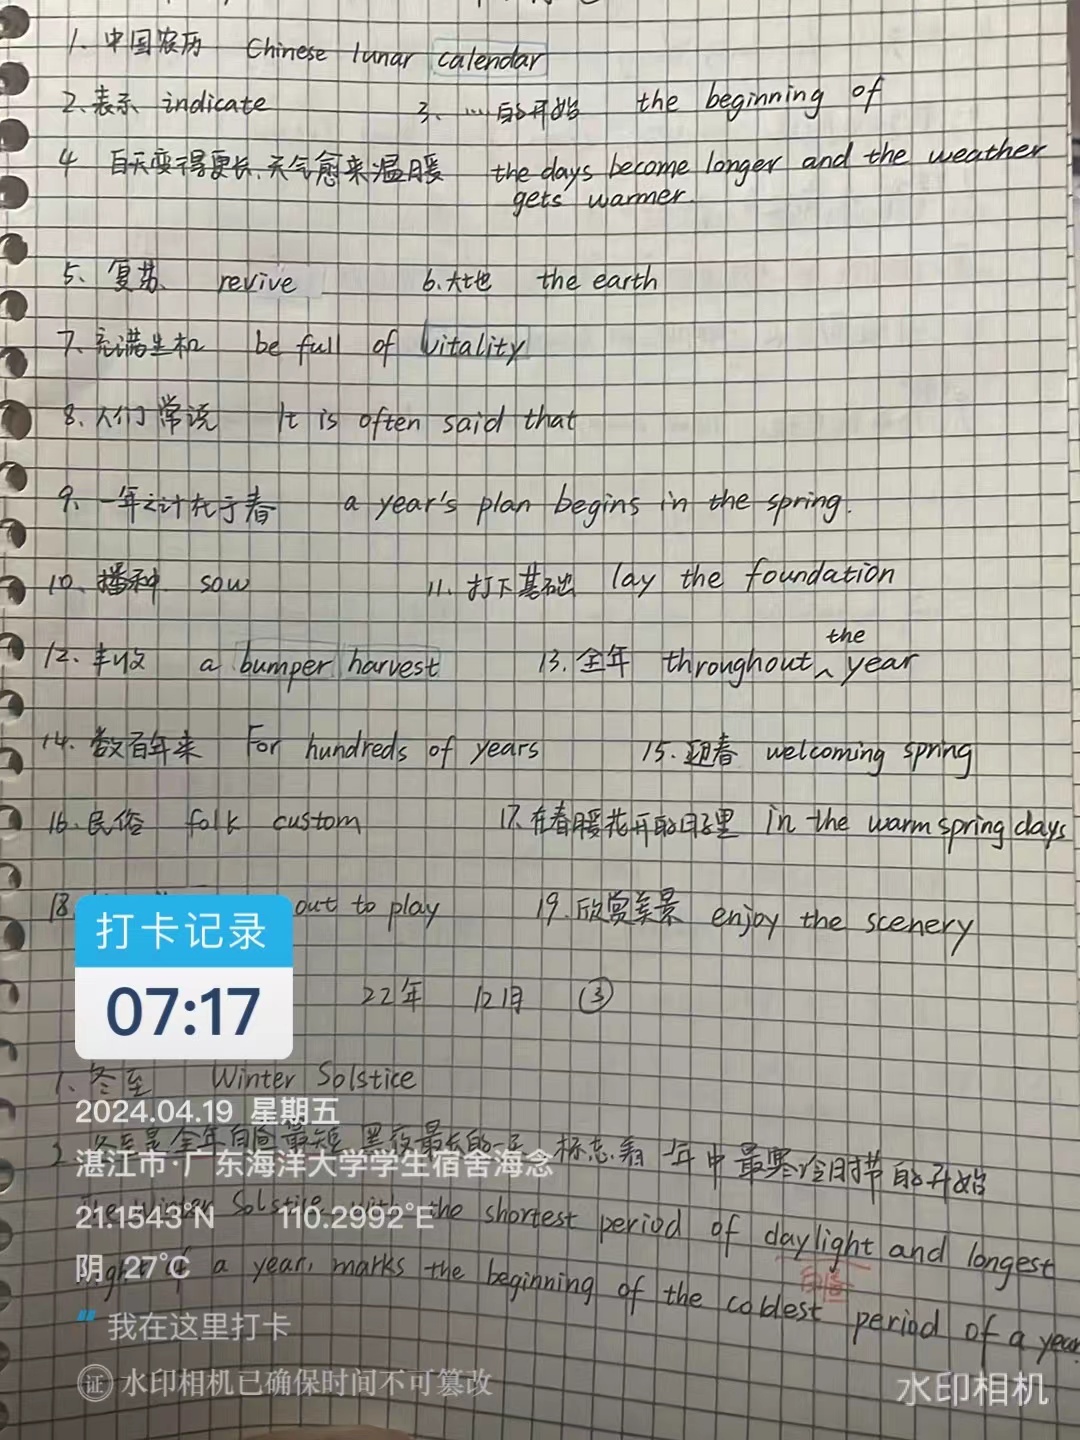 1、中国农历 Chinese lunar calendar
2、表示 indicate 3、…的开始 the beginning of
4 白天变得更长、天气愈来温暖 the days become longer and the weather
gets warmer.
5、复苏 revive 6.大地 the earth
7、充满生机 be full of vitality
8、人们常说 It is often said that
9、一年之计在于春 a year's plan begins in the spring.
10、播种 sow 11、打下基础 lay the foundation
12、丰收 a bumper harvest 13.全年 throughout the year
14、数百年来 For hundreds of years 15.迎春 welcoming spring
16、民俗 folk custom 17.在春暖花开的日子里 in the warm spring days
18 out to play 19.欣赏美景 enjoy the scenery
打卡记录
07:17
22年 12月 ③
1、冬至 Winter Solstice
2024.04.19 星期五
2 冬至是全年白昼最短,黑夜最长的一天 标志着一年中最寒冷时节的开始
湛江市·广东海洋大学学生宿舍海念
The Winter Solstice with the shortest period of daylight and longest
白昼
21.1543°N 110.2992°E
night of a year, marks the beginning of the coldest period of a year.
阴 27℃
我在这里打卡
证 水印相机已确保时间不可篡改
水印相机